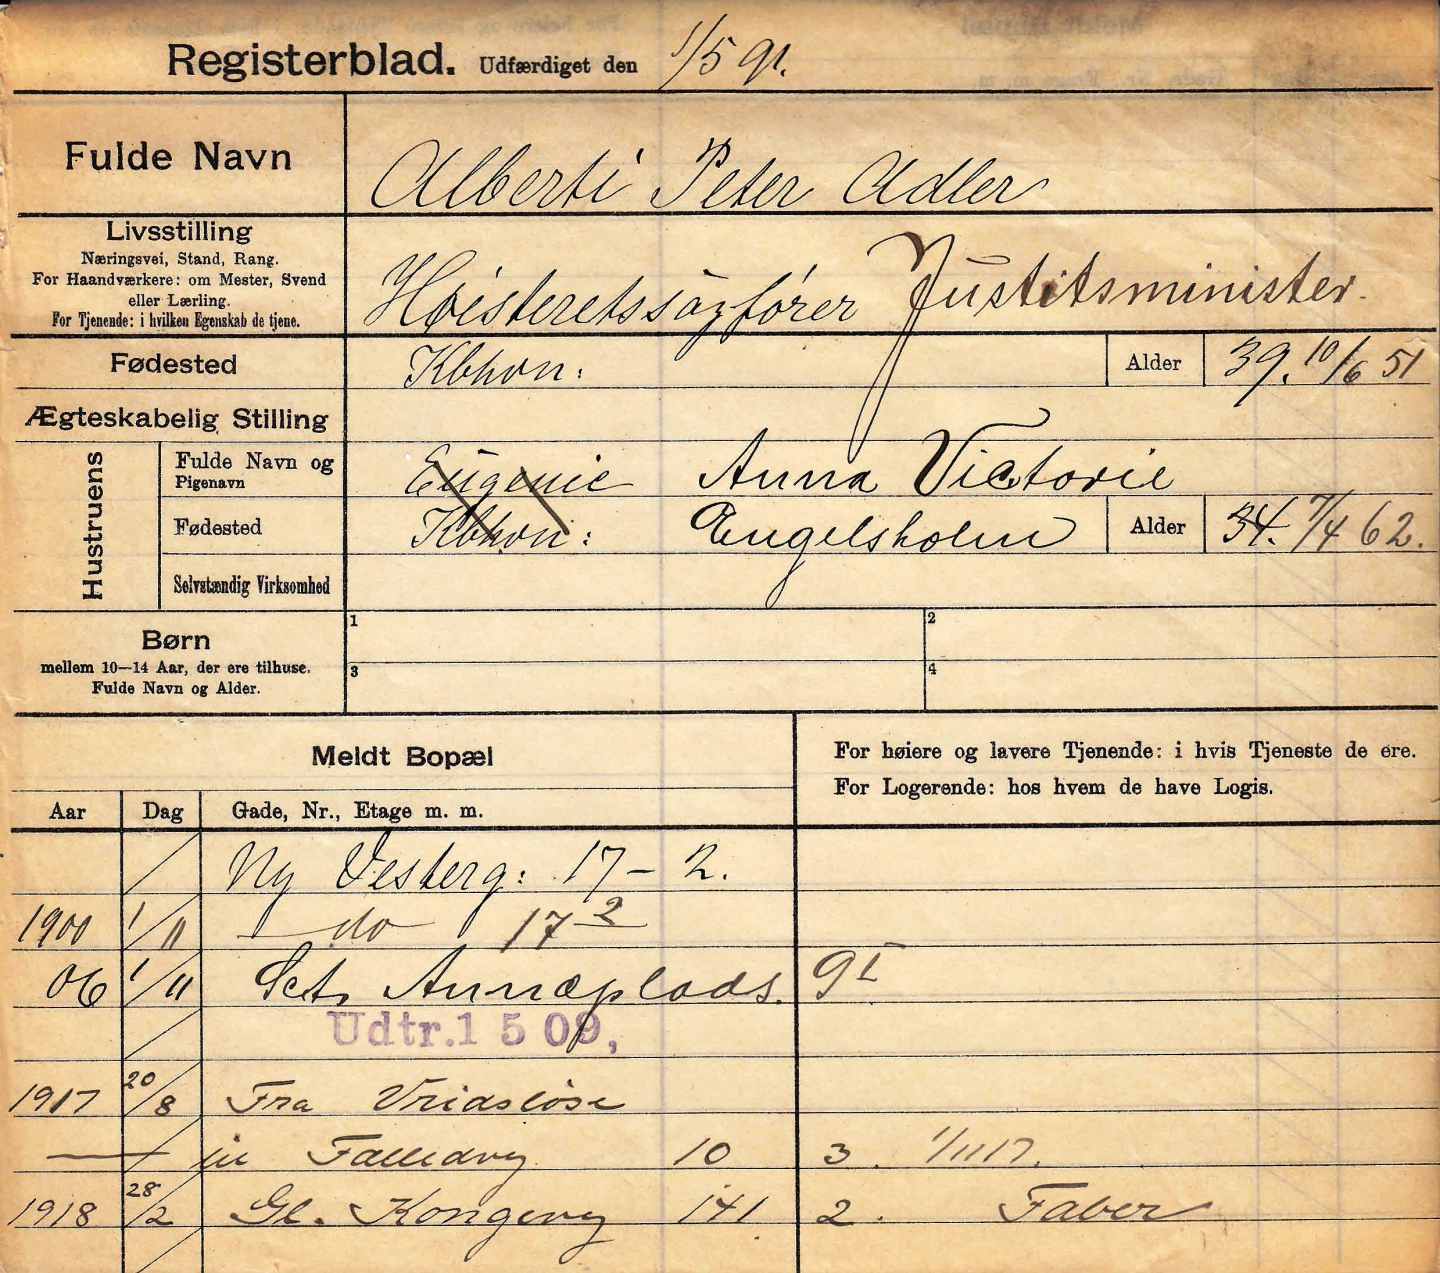 Registerblad. Udfærdiget den 1/5 91.
Fulde Navn Alberti Peter Adler
Livsstilling
Næringsvei, Stand, Rang.
For Haandværkere: om Mester, Svend
eller Lærling.
For Tjenende: i hvilken Egenskab de tjene.
Høisteretssagfører Justitsminister.
Fødested Kbhvn: Alder 39. 10/6 51
Ægteskabelig Stilling
Hustruens
Fulde Navn og
Pigenavn
Eugenie Anna Victorie
Fødested Kbhvn: Engelsholm Alder 34. 7/4 62.
Selvstændig Virksomhed
Børn
mellem 10—14 Aar, der ere tilhuse.
Fulde Navn og Alder.
1 2
3 4
Meldt Bopæl
For høiere og lavere Tjenende: i hvis Tjeneste de ere.
For Logerende: hos hvem de have Logis.
Aar Dag Gade, Nr., Etage m. m.
/ Ny Vesterg: 17 – 2.
1900 1/11 do 17 2
06 1/11 Sct. Annæplads. 9 I
Udtr. 1 5 09,
1917 20/8 Fra Vridsløse
— Falledvej 10 3. 1/11 17.
1918 28/2 Gl. Kongevej 141 2. Faber